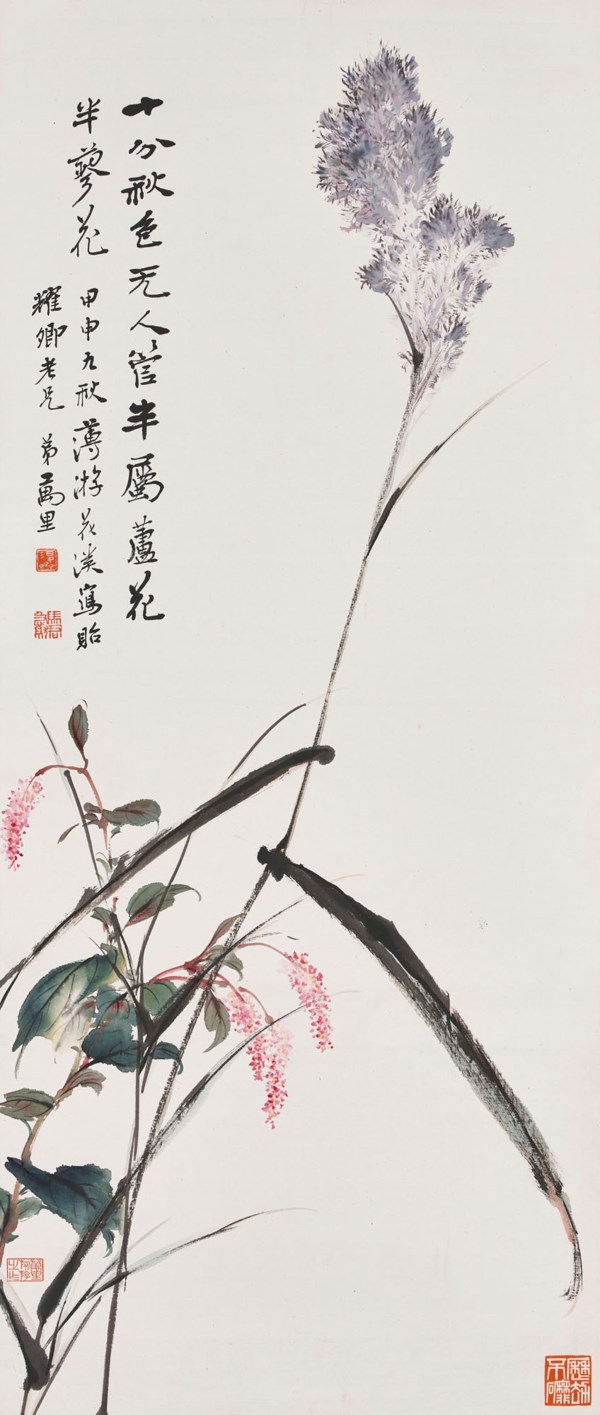 十分秋色无人管半屬蘆花
半蓼花
甲申九秋薄游花溪寫貽
耀卿老兄 弟萬里